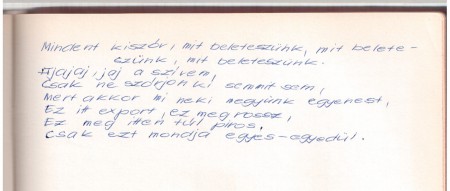 Mindent kiszór, mit beleteszünk, mit belete-
szünk, mit beleteszünk.
Jajaj, jaj a szívem,
Csak ne szórjon ki semmit sem,
Mert akkor mi neki megyünk egyenest,
Ez itt export, ez meg rossz,
Ez meg itten túl piros,
Csak ezt mondja egyes-egyedül.